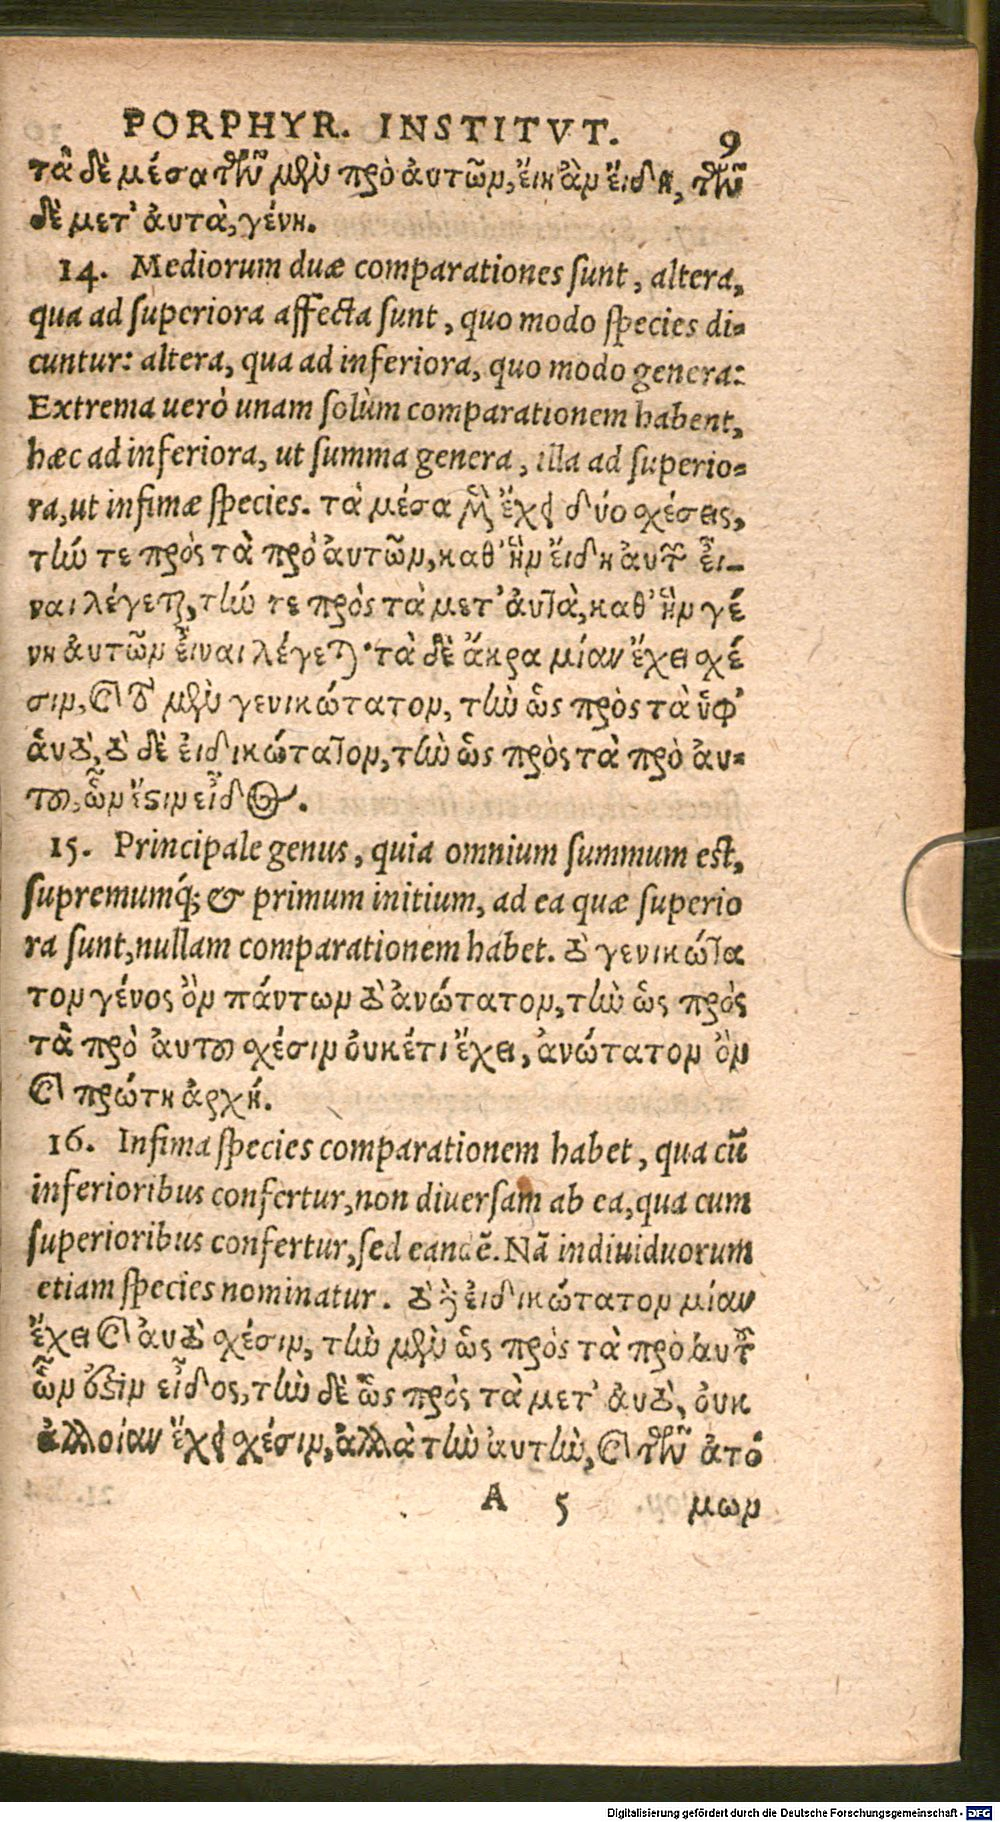 PORPHYR. INSTITVT. 9
τὰ δὲ μέσα τῶν μὲν πρὸ ἀυτῶν, ἔιη ἂν ἔιδη, τῶν
δὲ μετ' ἀυτὰ, γένη.
14. Mediorum duæ comparationes sunt, altera,
qua ad superiora affecta sunt, quo modo species di-
cuntur: altera, qua ad inferiora, quo modo genera:
Extrema uerò unam solùm comparationem habent,
hæc ad inferiora, ut summa genera, illa ad superio-
ra, ut infimæ species. τὰ μέσα ἢ ἔχει δύο σχέσεις,
τίω τε πρὸς τὰ πρὸ ἀυτῶν, καθ' ἣν ἔιδη ἀυτῶν ἔι-
ναι λέγεται, τίω τε πρὸς τὰ μετ' ἀυτὰ, καθ' ἣν γέ
νη ἀυτῶν ἔιναι λέγεται· τὰ δὲ ἄκρα μίαν ἔχει σχέ
σιν, καὶ τὸ μὲν γενικώτατον, τὴν ὡς πρὸς τὰ ὑφ'
ἀυτὸ, τὸ δὲ ἐιδικώτατον, τὴν ὡς πρὸς τὰ πρὸ ἀυ-
τοῦ, ὧν ἔστιν εἶδος.
15. Principale genus, quia omnium summum est,
supremumq́; & primum initium, ad ea quæ superio
ra sunt, nullam comparationem habet. τὸ γενικώτα
τον γένος ὂν πάντων τὸ ἀνώτατον, τὴν ὡς πρὸς
τὰ πρὸ ἀυτοῦ σχέσιν ὀυκέτι ἔχει, ἀνώτατον ὂν
καὶ πρώτη ἀρχή.
16. Infima species comparationem habet, qua cū
inferioribus confertur, non diuersam ab ea, qua cum
superioribus confertur, sed eandē. Nā indiuiduorum
etiam species nominatur. τὸ ἢ ἐιδικώτατον μίαν
ἔχει καὶ ἀυτὸ σχέσιν, τὴν μὲν ὡς πρὸς τὰ πρὸ ἀυτοῦ
ὧν ὅξιν εἶδος, τὴν δὲ ὡς πρὸς τὰ μετ' ἀυτὸ, ὀυκ
ἀλλοίαν ἔχει σχέσιν, ἀλλὰ τὴν ἀυτὴν, καὶ τῶν ἀτό
A 5 μων
Digitalisierung gefördert durch die Deutsche Forschungsgemeinschaft - DFG